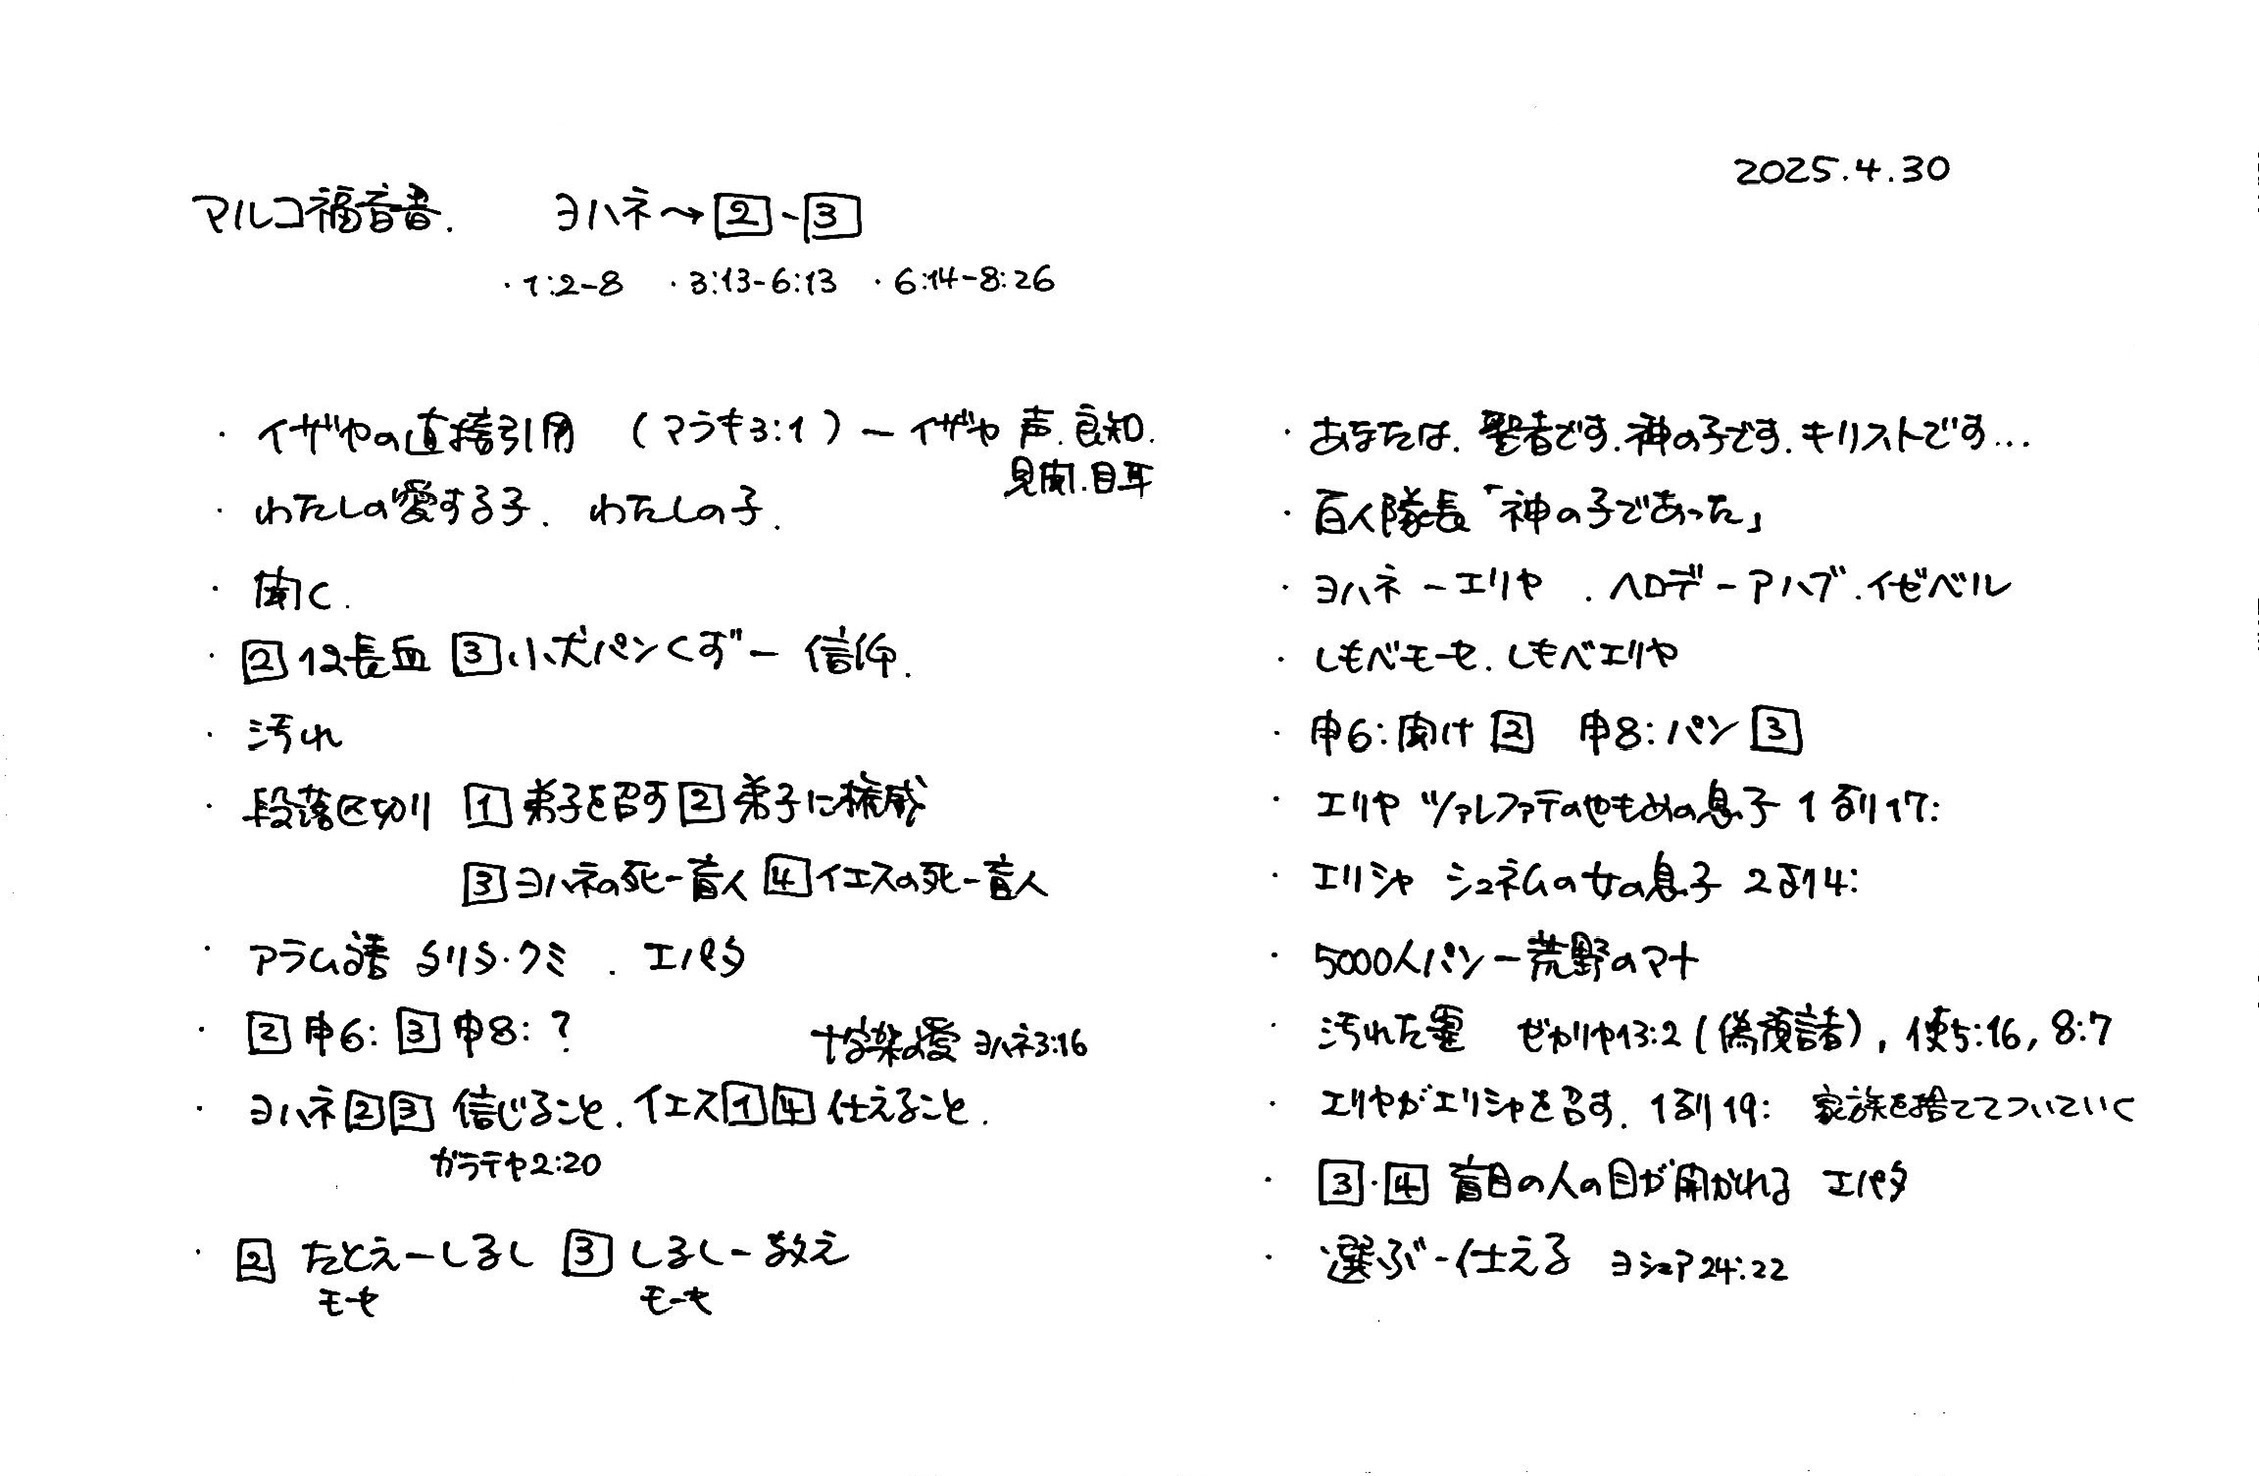 2025.4.30
マルコ福音書. ヨハネ→2-3
・1:2-8 ・3:13-6:13 ・6:14-8:26
・イザヤの直接引用 (マラキ3:1)ー イザヤ 声.良知.
見聞.目耳
・わたしの愛する子. わたしの子.
・聞く.
・2 12長血 3 小犬パンくずー 信仰.
・汚れ
・段落区切り 1 弟子を召す 2 弟子に権威
3 ヨハネの死ー盲人 4 イエスの死ー盲人
・アラム語 タリタ・クミ . エパタ
・2 申6: 3 申8: ?
十字架の愛 ヨハネ3:16
・ヨハネ 2 3 信じること. イエス 1 4 仕えること.
ガラテヤ2:20
・2 たとえーしるし 3 しるしー教え
モーセ モーセ
・あなたは. 聖者です.神の子です.キリストです...
・百人隊長「神の子であった」
・ヨハネ ーエリヤ . ヘロデーアハブ.イゼベル
・しもべモーセ. しもべエリヤ
・申6:聞け 2 申8:パン 3
・エリヤ ツァレファテのやもめの息子 1列17:
・エリシャ シュネムの女の息子 2列4:
・5000人パンー荒野のマナ
・汚れた霊 ゼカリヤ13:2(偽預言者), 使5:16, 8:7
・エリヤがエリシャを召す. 1列19: 家族を捨ててついていく
・3・4 盲目の人の目が開かれる エパタ
・選ぶ-仕える ヨシュア24:22